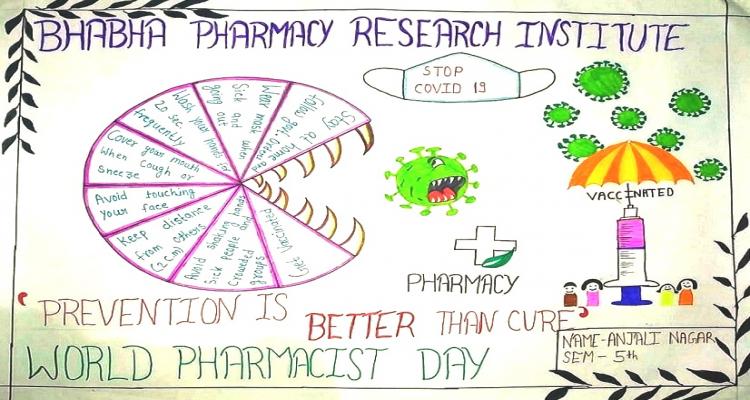 BHABHA PHARMACY RESEARCH INSTITUTE
STOP
COVID 19
Stay at home
follow gov. orders
Wear mask when
Sick and
going out
Wash your hands
20 sec
frequently
Cover your mouth
When cough or
sneeze
Avoid touching
your face
Keep distance
from others
(2cm)
Avoid shaking hands
Sick people and
crowded
groups
Get Vaccinated
VACCINATED
PHARMACY
"PREVENTION IS
BETTER THAN CURE"
WORLD PHARMACIST DAY
NAME-ANJALI NAGAR
SEM- 5th